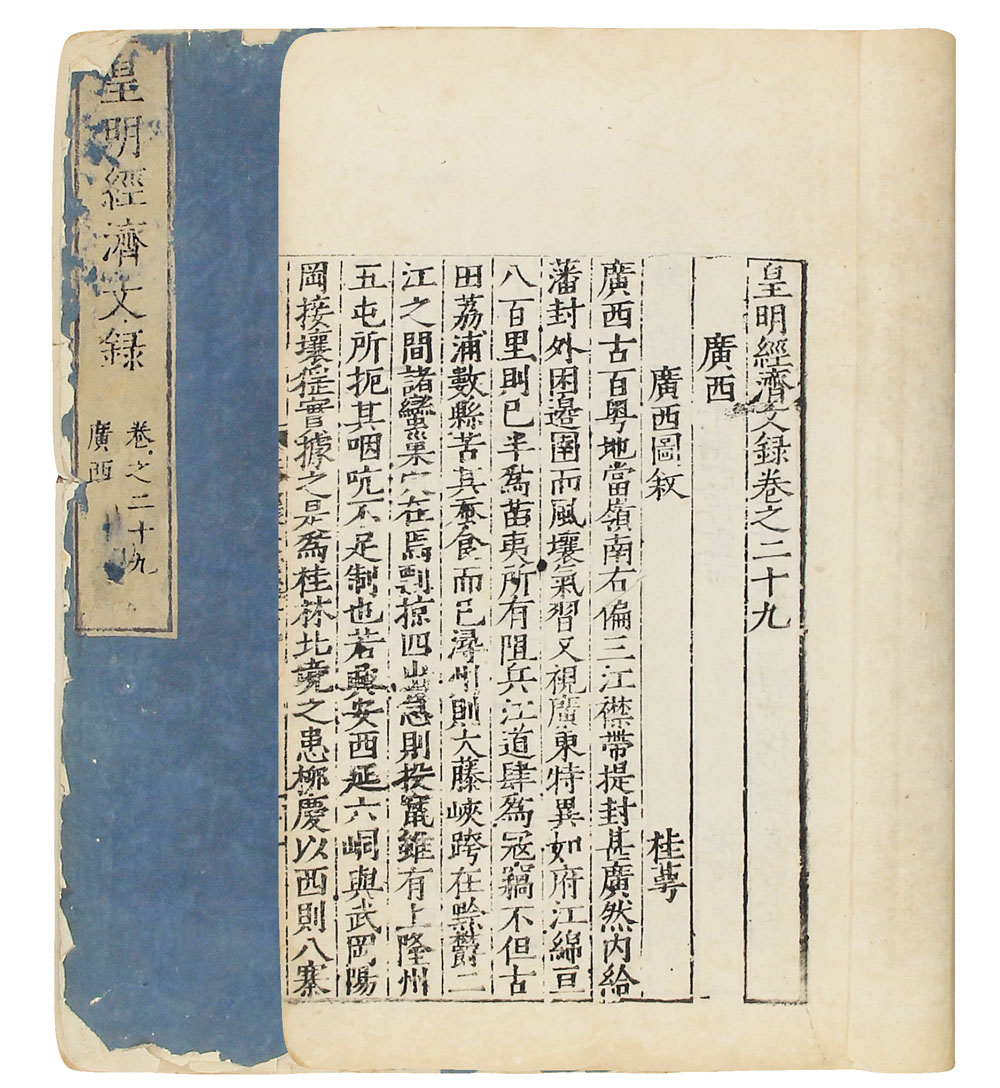 皇明經濟文録卷之二十九
廣西
廣西圖敘 桂萼
廣西古百粤地當嶺南右偏三江襟帶提封甚廣然内給
藩封外困邊圉而風壤氣習又視廣東特異如府江綿亘
八百里則已半爲苗夷所有阻兵江道肆爲冦竊不但古
田荔浦數縣苦其蚕食而已潯州則大藤峽跨在黔欝二
江之間諸蠻巢穴在焉剽掠四出急則投竄雖有上隆州
五屯所扼其咽吭不足制也若興安西延六峒與武岡陽
岡接壤徭實據之是爲桂林北竟之患柳慶以西則八寨
皇明經濟文録
卷之二十九
廣西